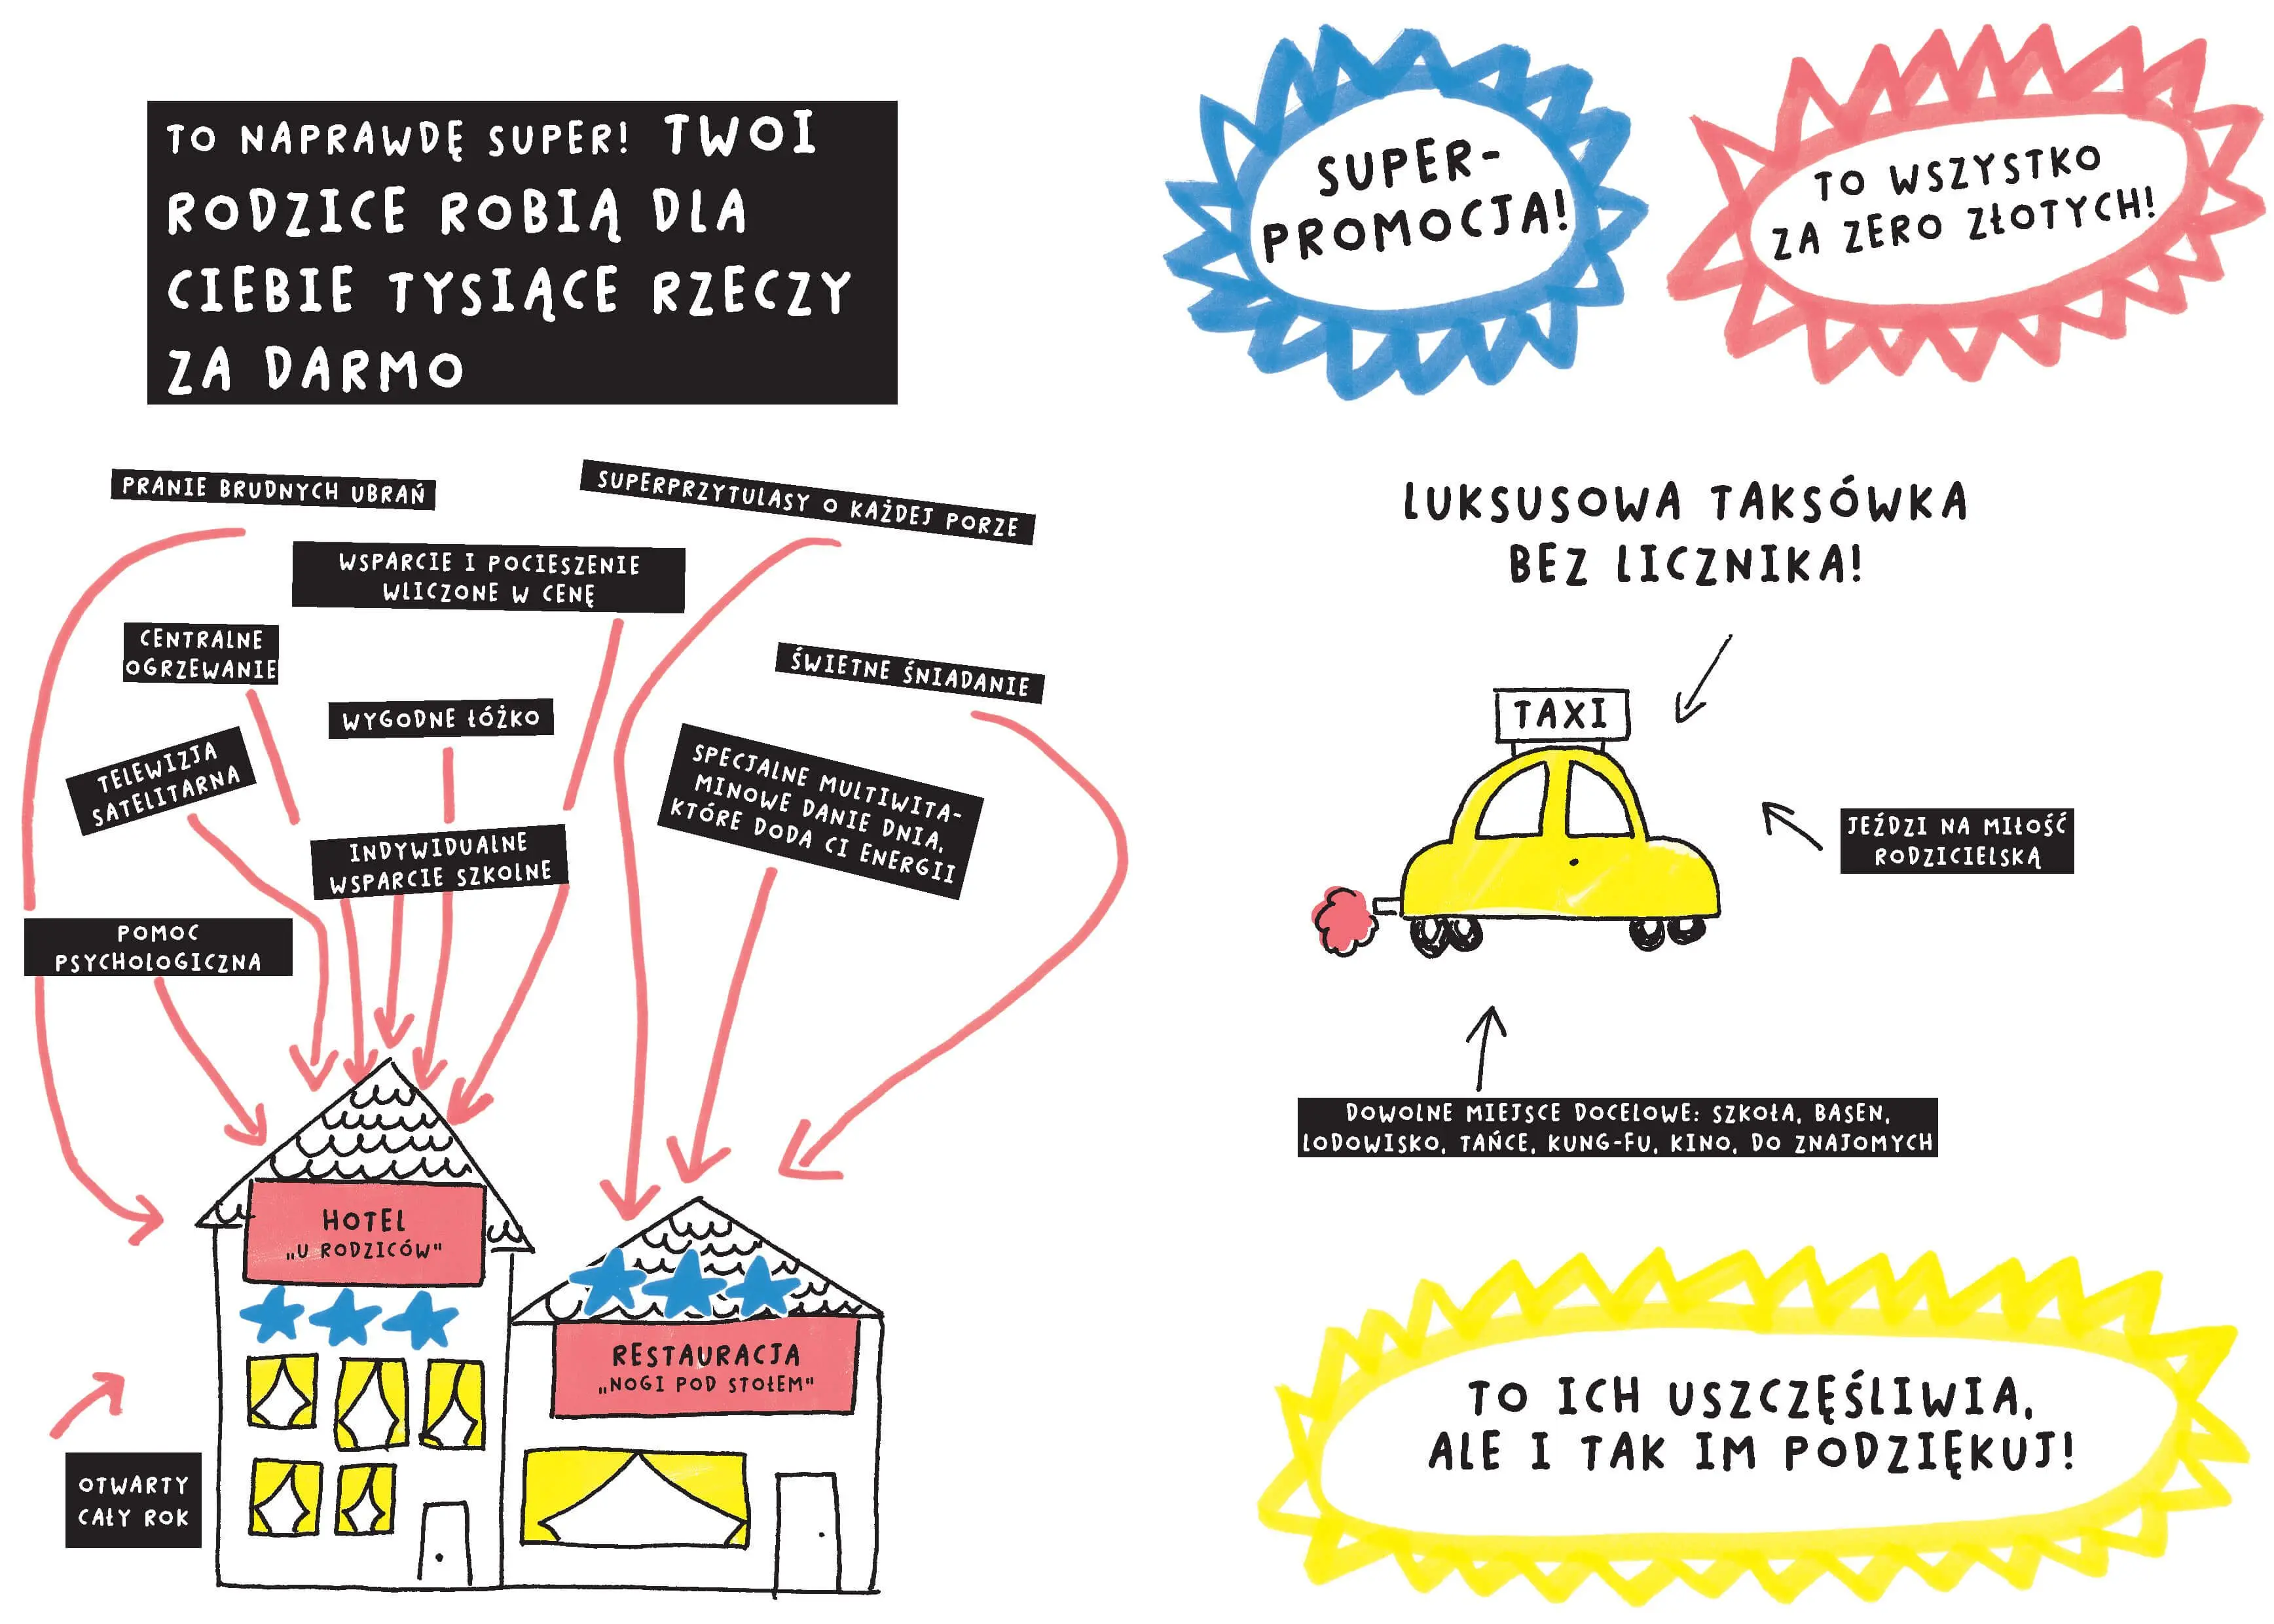 TO NAPRAWDĘ SUPER! TWOI
RODZICE ROBIĄ DLA
CIEBIE TYSIĄCE RZECZY
ZA DARMO
PRANIE BRUDNYCH UBRAŃ
SUPERPRZYTULASY O KAŻDEJ PORZE
WSPARCIE I POCIESZENIE
WLICZONE W CENĘ
CENTRALNE
OGRZEWANIE
ŚWIETNE ŚNIADANIE
WYGODNE ŁÓŻKO
TELEWIZJA
SATELITARNA
SPECJALNE MULTIWITA-
MINOWE DANIE DNIA,
KTÓRE DODA CI ENERGII
INDYWIDUALNE
WSPARCIE SZKOLNE
POMOC
PSYCHOLOGICZNA
HOTEL
„U RODZICÓW"
RESTAURACJA
„NOGI POD STOŁEM"
OTWARTY
CAŁY ROK
SUPER-
PROMOCJA!
TO WSZYSTKO
ZA ZERO ZŁOTYCH!
LUKSUSOWA TAKSÓWKA
BEZ LICZNIKA!
TAXI
JEŹDZI NA MIŁOŚĆ
RODZICIELSKĄ
DOWOLNE MIEJSCE DOCELOWE: SZKOŁA, BASEN,
LODOWISKO, TAŃCE, KUNG-FU, KINO, DO ZNAJOMYCH
TO ICH USZCZĘŚLIWIA,
ALE I TAK IM PODZIĘKUJ!